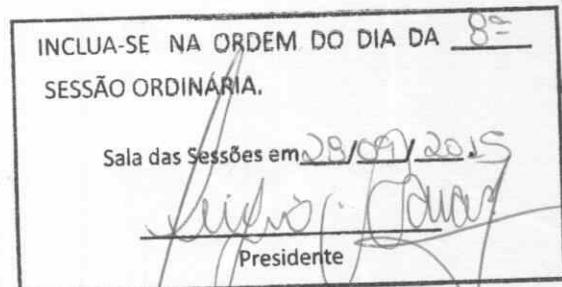 INCLUA-SE NA ORDEM DO DIA DA 8ª
SESSÃO ORDINÁRIA.
Sala das Sessões em 28/09/2015
Presidente